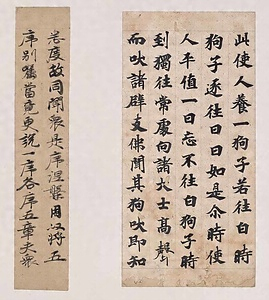 此使人養一狗子若往白時
狗子逐往日日如是尒時使
人卒值一日忘不往白狗子時
到獨往常處向諸大士高聲
而吠諸辟支佛聞其狗吠即知
度故同聞衆是序涅槃用以將五
序別當竟更說一序各序五章大衆